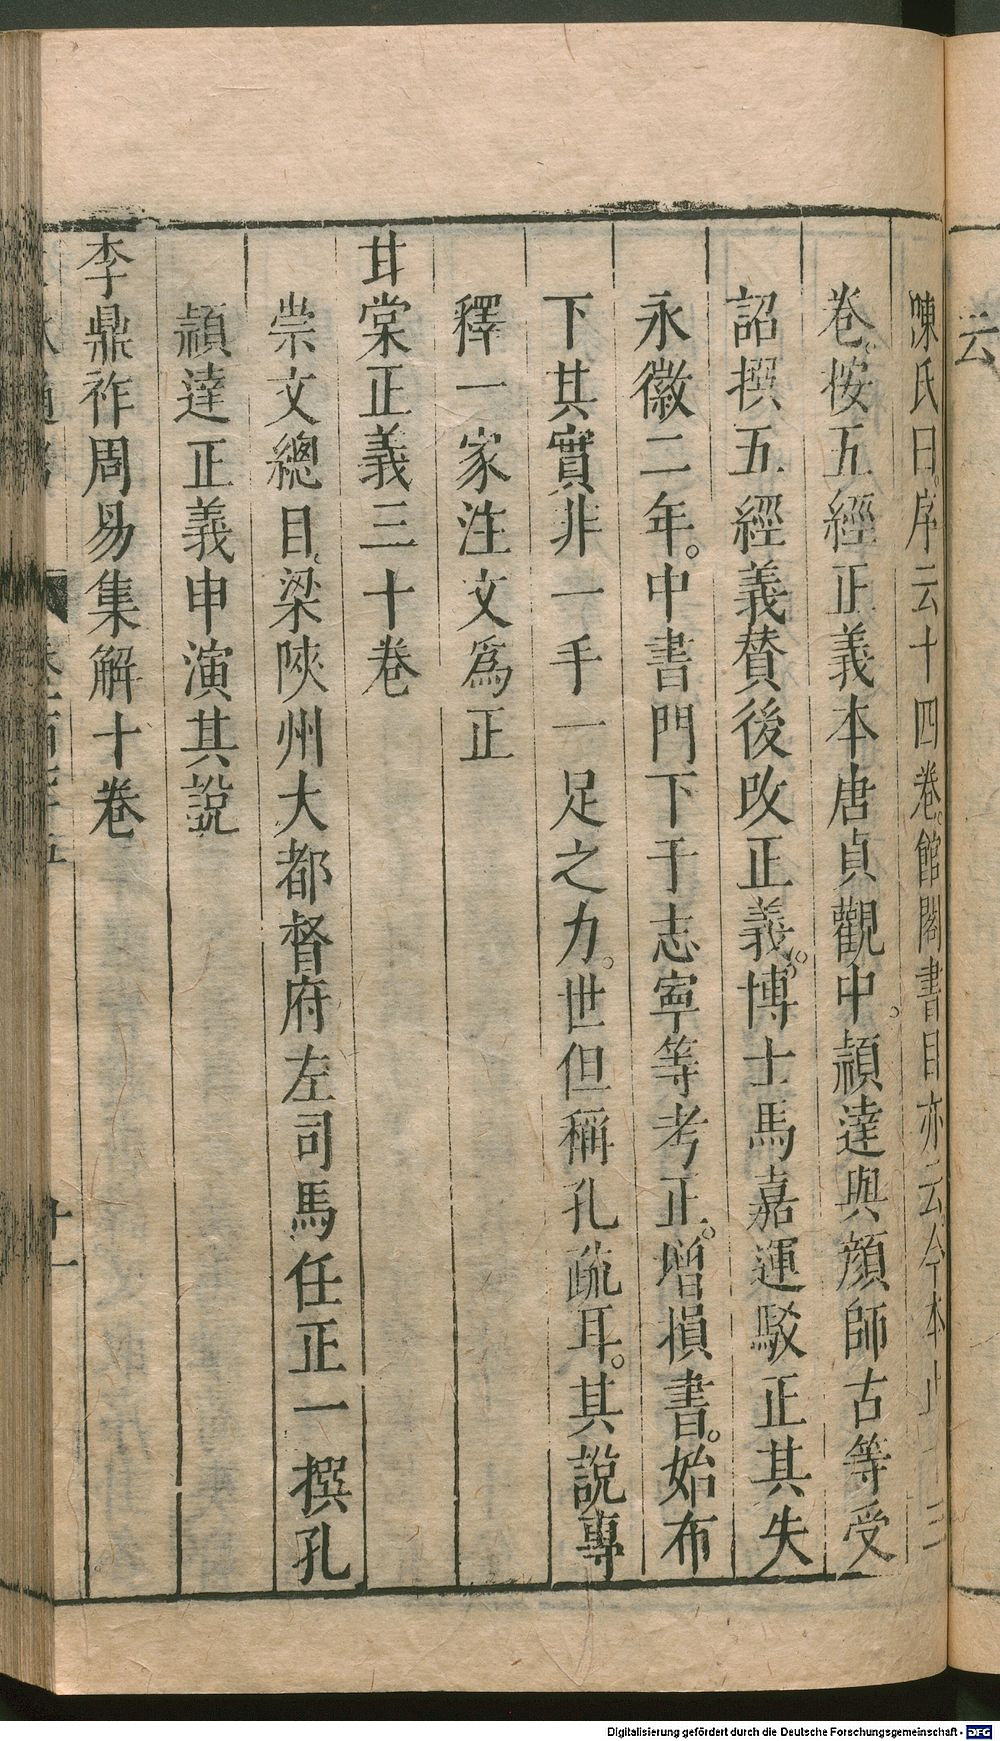 陳氏曰序云十四卷館閣書目亦云今本止十三
卷按五經正義本唐貞觀中穎達與顔師古等受
詔撰五經義賛後改正義博士馬嘉運駁正其失
永徽二年中書門下于志寧等考正增損書始布
下其實非一手一足之力世但稱孔疏耳其說專
釋一家注文爲正
甘棠正義三十卷
崇文總目梁陜州大都督府左司馬任正一撰孔
穎達正義申演其說
李鼎祚周易集解十卷
十一
云
Digitalisierung gefördert durch die Deutsche Forschungsgemeinschaft - DFG